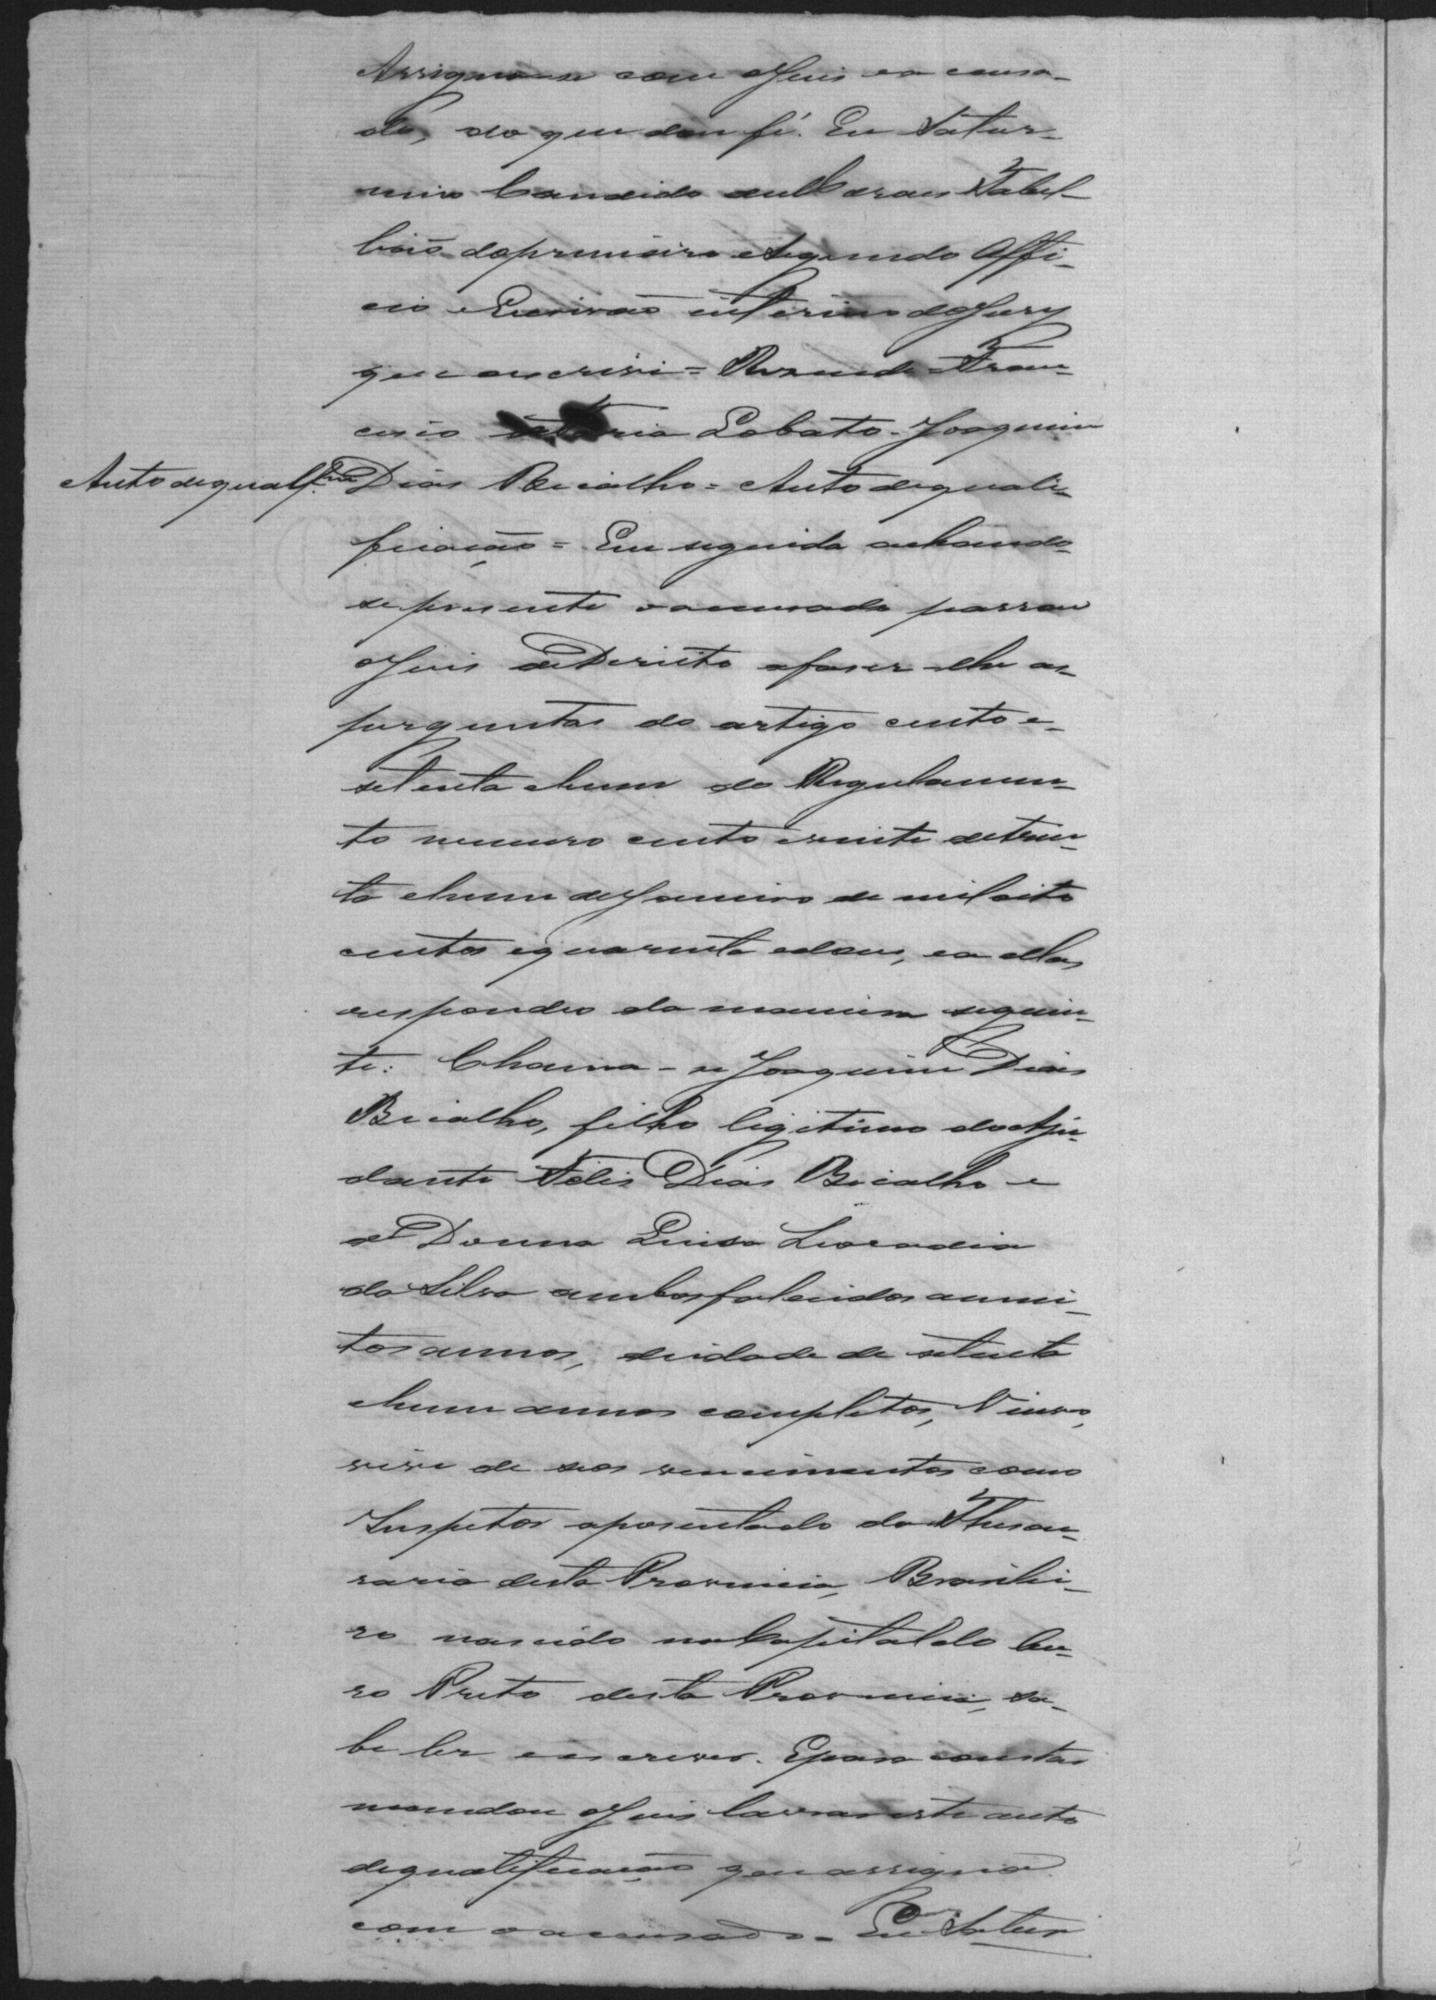 Assignou-se com o Juis e o accusa-
do, do que dou fé. Eu Satur-
nino Candido de Moraes Tabel-
lião do primeiro e segundo Offi-
cio e Escrivão interino do Jury
que o escrivi = Resende = Fran-
cisco Lobato - Joaquim
Auto de qualif.cão
Dias Bicalho = Auto de quali-
ficação = Em seguida achando-
se presente o accusado passou
o Juis de Direito a faser-lhe as
perguntas do artigo cento e
setenta e hum do Regulamen-
to numero cento e vinte de trin-
ta e hum de Janeiro de mil oito
centos e quarenta e dous, e a ellas
respondeo da maneira seguin-
te: Chama-se Joaquim Dias
Bicalho, filho legitimo do Aju-
dante Felis Dias Bicalho e
de Donna Luisa Leocadia
da Silva ambos falecidos a mui-
tos annos, de idade de setenta
e hum annos completos, Viuvo,
vive de seos vencimentos como
Inspetor aposentado da Thesou-
raria desta Provincia, Brasilei-
ro nascido na Capital do Ou-
ro Preto desta Provincia, sa-
be ler e escrever. E para constar
mandou o Juis lavrar este auto
de qualificação que assigna
com o accusado - Eu Satur